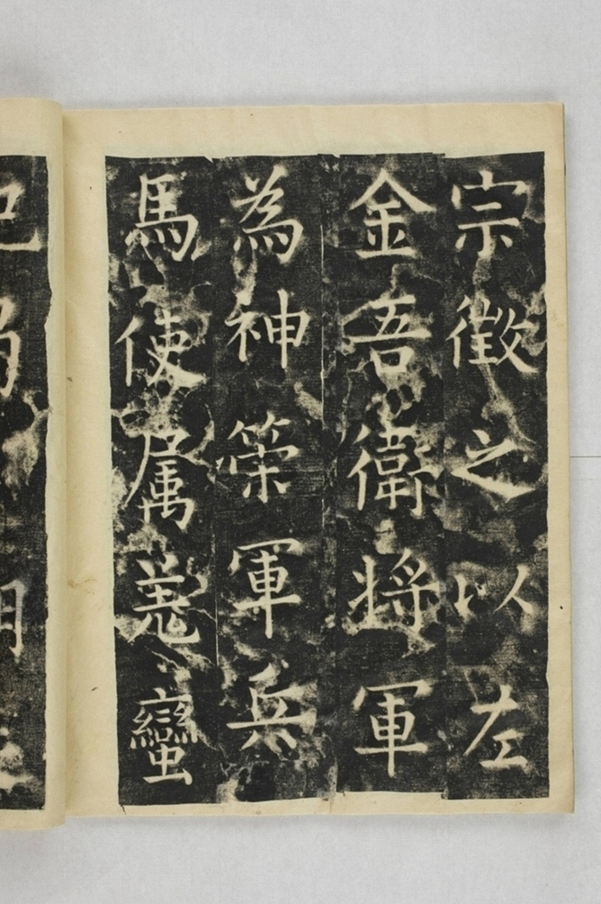 宗徵之以左
金吾衛將軍
為神策軍兵
馬使属羌蠻
犯